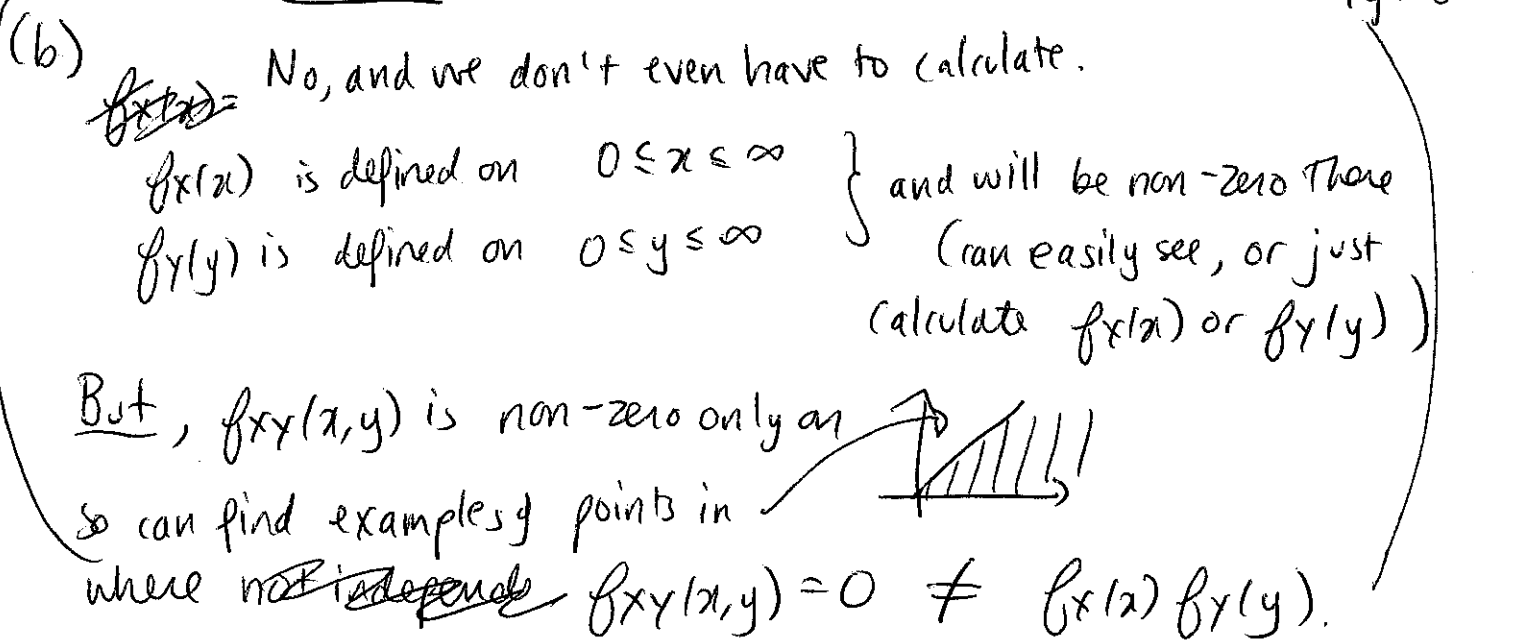 (b) No, and we don't even have to calculate.
fx(x) is defined on 0 ≤ x ≤ ∞ } and will be non-zero there
fy(y) is defined on 0 ≤ y ≤ ∞ (can easily see, or just
calculate fx(x) or fy(y))
But, fxy(x,y) is non-zero only on
so can find examples of points in
where fxy(x,y) = 0 ≠ fx(x) fy(y).